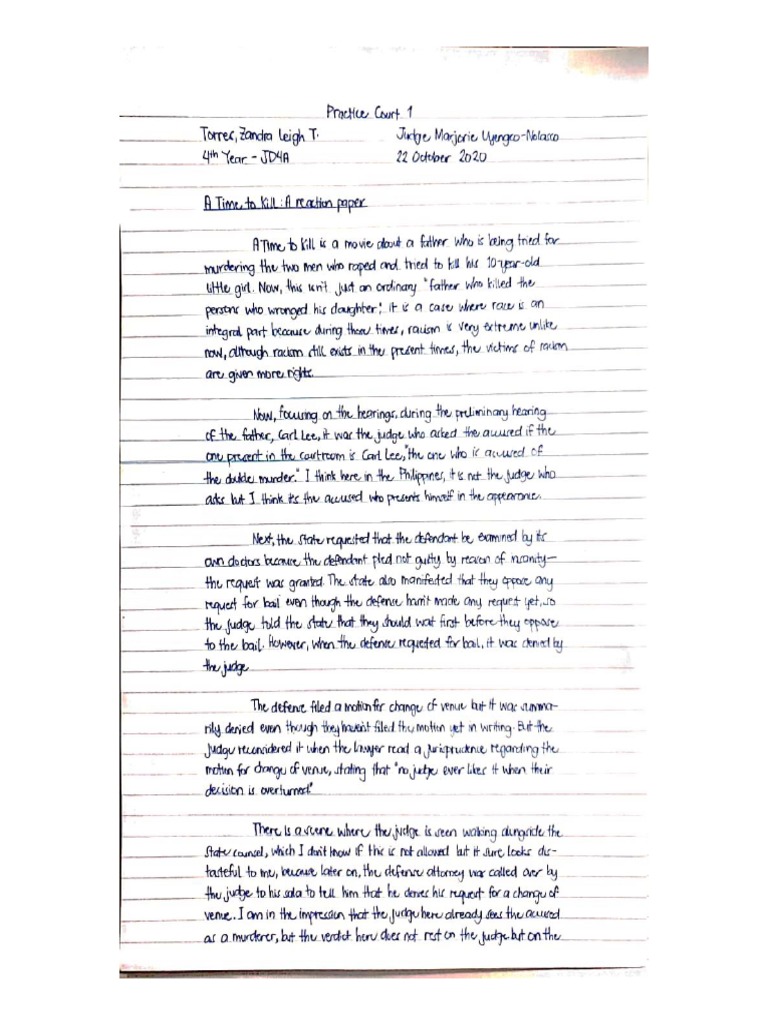 Practice Court 1
Torres, Zandra Leigh T. Judge Marjorie Uyengco-Nolasco
4th Year - JD4A 22 October 2020
A Time to Kill: A reaction paper
A Time to Kill is a movie about a father who is being tried for
murdering the two men who raped and tried to kill his 10-year-old
little girl. Now, this isn't just an ordinary "father who killed the
persons who wronged his daughter", it is a case where race is an
integral part because during those times, racism is very extreme unlike
now, although racism still exists in the present times, the victims of racism
are given more rights.
Now, focusing on the hearings, during the preliminary hearing
of the father, Carl Lee, it was the judge who asked the accused if the
one present in the courtroom is Carl Lee, "the one who is accused of
the double murder." I think here in the Philippines, it is not the judge who
asks but I think it's the accused who presents himself in the appearance.
Next, the state requested that the defendant be examined by its
own doctors because the defendant pled not guilty by reason of insanity—
the request was granted. The state also manifested that they oppose any
request for bail even though the defense hasn't made any request yet, so
the judge told the state that they should wait first before they oppose
to the bail. However, when the defense requested for bail, it was denied by
the judge
The defense filed a motion for change of venue but it was summa-
rily denied even though they haven't filed the motion yet in writing. But the
judge reconsidered it when the lawyer read a jurisprudence regarding the
motion for change of venue, stating that "no judge ever likes it when their
decision is overturned"
There is a scene where the judge is seen walking alongside the
state counsel, which I don't know if this is not allowed but it sure looks dis-
tasteful to me, because later on, the defense attorney was called over by
the judge to his sala to tell him that he denies his request for a change of
venue. I am in the impression that the judge here already sees the accused
as a murderer, but the verdict here does not rest on the judge but on the